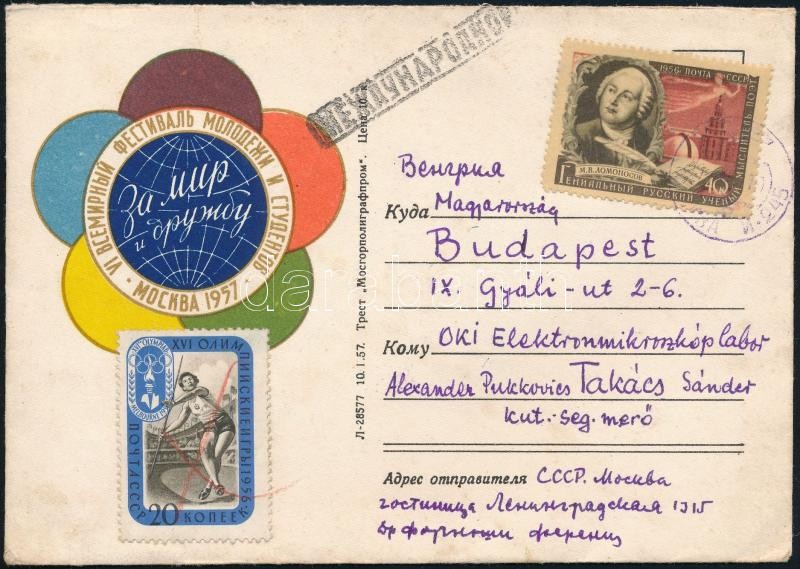 МЕЖДУНАРОДНОЕ
VI ВСЕМИРНЫЙ ФЕСТИВАЛЬ МОЛОДЕЖИ И СТУДЕНТОВ
За мир
и дружбу
МОСКВА 1957
XVI ОЛИМПИЙСКИЕ ИГРЫ 1956 г.
ПОЧТА СССР
20 КОПЕЕК
Л-28577 10.I.57. Трест „Мосгорполиграфпром". Цена 10 к.
1956 ПОЧТА СССР
М.В.ЛОМОНОСОВ
ГЕНИАЛЬНЫЙ РУССКИЙ УЧЕНЫЙ МЫСЛИТЕЛЬ ПОЭТ
40
Венгрия
Куда Magyarország
Budapest
IX. Gyáli-ut 2-6.
Кому OKI Elektronmikroszkóplabor
Alexander Pukkovics Takács Sándor
kut.-seg.merő
Адрес отправителя СССР. Москва
гостиница Ленинградская 1315
darabanth